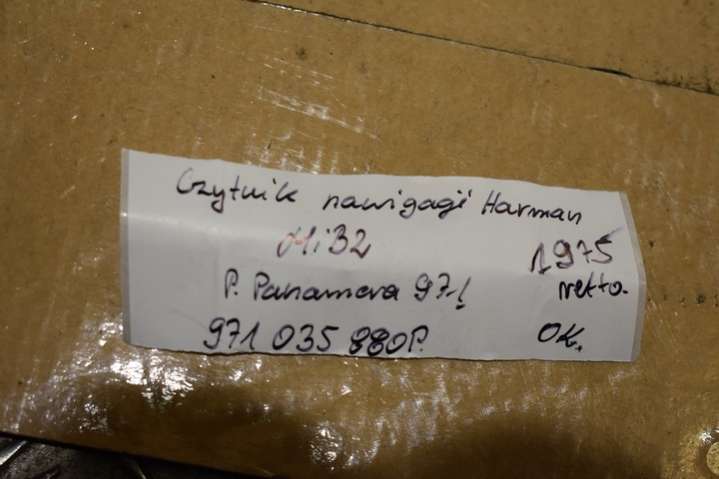 Czytnik nawigacji Harman
MiB2 1975
P. Panamera 971 netto.
971 035 880P. OK.